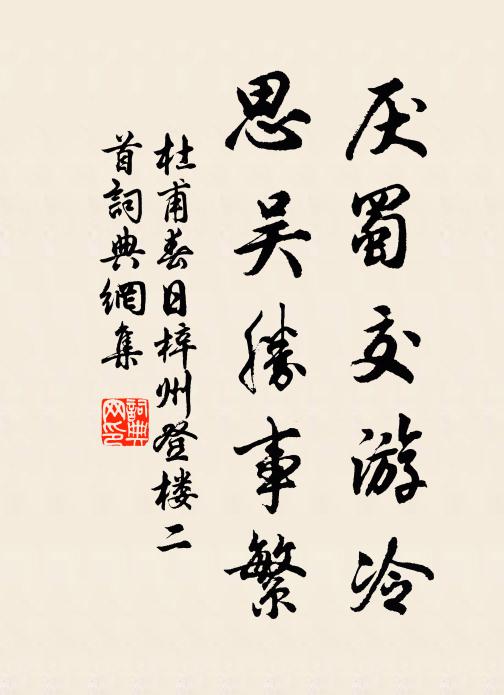 厌蜀交游冷
思吴胜事繁
杜甫春日梓州登楼二
首词典網集
詞典
网印